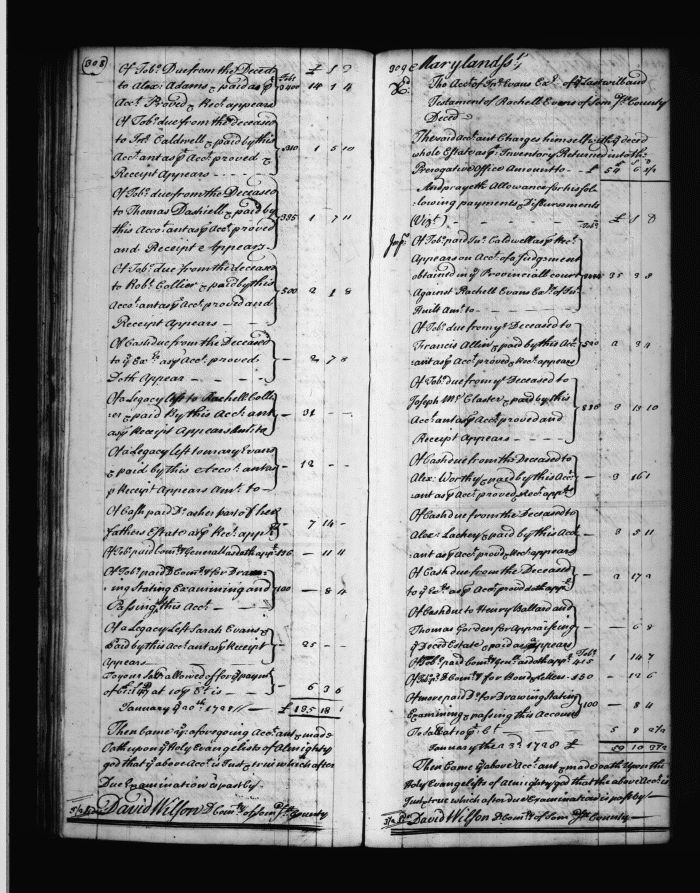 308
Of Tobo. Due from the Deced
to Alex: Adams & paid as ⅌ 2400 14 1 4
Acct. Proved & Rect. appears
Of Tobo. due from the deceased
to Jno. Caldwell & paid by this
Accot. ant as ⅌ Acct. proved & 1 5 10
Receipt Appears
Of Tobo. due from the Deceased
to Thomas Dashiell & paid by
this Accot. ant as ⅌ Acct. proved 385 1 7 11
and Receipt Appears
Of Tobo. due from the deceased
to Robt. Collier & paid by this
Accot. ant as ⅌ Acct. proved and 500 2 1 8
Receipt Appears
Of Cash due from the Deceased
to ye Exr. as ⅌ Acct. proved — 2 7 8
Doth Appear
Of a Legacy left to Rachell Colli
er & paid By this Acct. ant — 31 - -
as ⅌ Receipt Appears Amt. to
Of a Legacy Left to mary Evans
& paid by this Accot. ant as — 12 - -
⅌ Receipt Appears Amt. to
Of Cash paid Do. as her part of her
fathers Estate as ⅌ Rect. apprs. 7 14 -
Of Tobo. paid Comry. Generall as doth appr. - 11 4
Of Tobo. paid D Comry. for Draw
ing Stating Examining and 100 - 8 4
Passing this Acct.
Of a Legacy Left Sarah Evans &
paid by this Accot. ant as ⅌ Receipt — 25 - -
Appears
To your Sallry. allowed of for ye paymt.
at 10 ⅌ Ct. is 6 3 6
January ye 20th. 1728 £ 135 18 1
Then Came ye aforegoing Accot. ant & made
Oath upon ye Holy Evangelists of Almighty
god that ye above Acct. is Just & true which after
Due Examination is past by
David Wilson D Comry. of Som:st County
309 Maryland ss.
The Acct. of Jno. Evans Exr. of ye Last will and
Testament of Rachell Evans of Som:st County
Deced
The said Accot. ant Charges himself with ye deced
whole Estate as ⅌ Inventory Returned into the
Prerogative Office Amount to £ 54 6
And prayeth Allowance for his fol
lowing payments & Disbursments
(Vizt.) £ S D
Imps. Of Tobo. paid Jno. Caldwell as ⅌ Rect.
Appears on Acct. of a Judgement
obtained in ye Provinciall court 35 3 8
Against Rachell Evans Exx. of Jno.
Amt. to
Of Tobo. due from ye Deceased to
Francis Allen & paid by this Acc 520 2 3 4
ant as ⅌ Acct. proved & Rect. appears
Of Tobo. due from ye Deceased to
Joseph Mc. Claster & paid by this
Accot. ant as ⅌ Acct. proved and 3 13 10
Receipt Appears
Of Cash due from the Deceased to
Alex: Worthy & paid by this Acct. — 3 16 1
ant as ⅌ Acct. proved & Rect. appr.
Of Cash due from the Deceased to
Alex: Lackey & paid by this Acct. — 3 5 11
ant as ⅌ Acct. prov'd & Rect. appears
Of Cash due from the Deceased
to ye Exr. as ⅌ Acct. prov'd doth appr. — 2 17 2
Of Cash due to Henry Ballard and
Thomas Gorden for Appraiseing — 6 8
ye Deced Estate & paid as appears
Of Tobo. paid Comry. Genl. as doth appr. 415 1 14 7
Of Tobo. ⅌ D Comry. for Bond & Letters 150 - 12 6
Of more paid Do. for Drawing Stating
Examining & passing this Account 100 - 8 4
To Sallry. at 10 ⅌ Ct. 5 8
January the 23d. 1728 £ 59 10
Then Came ye above Accot. ant & made oath Upon the
Holy Evangelists of Almighty god that the above Acct. is
Just & true which after due Examination is past by
David Wilson D Comry. of Som:st County